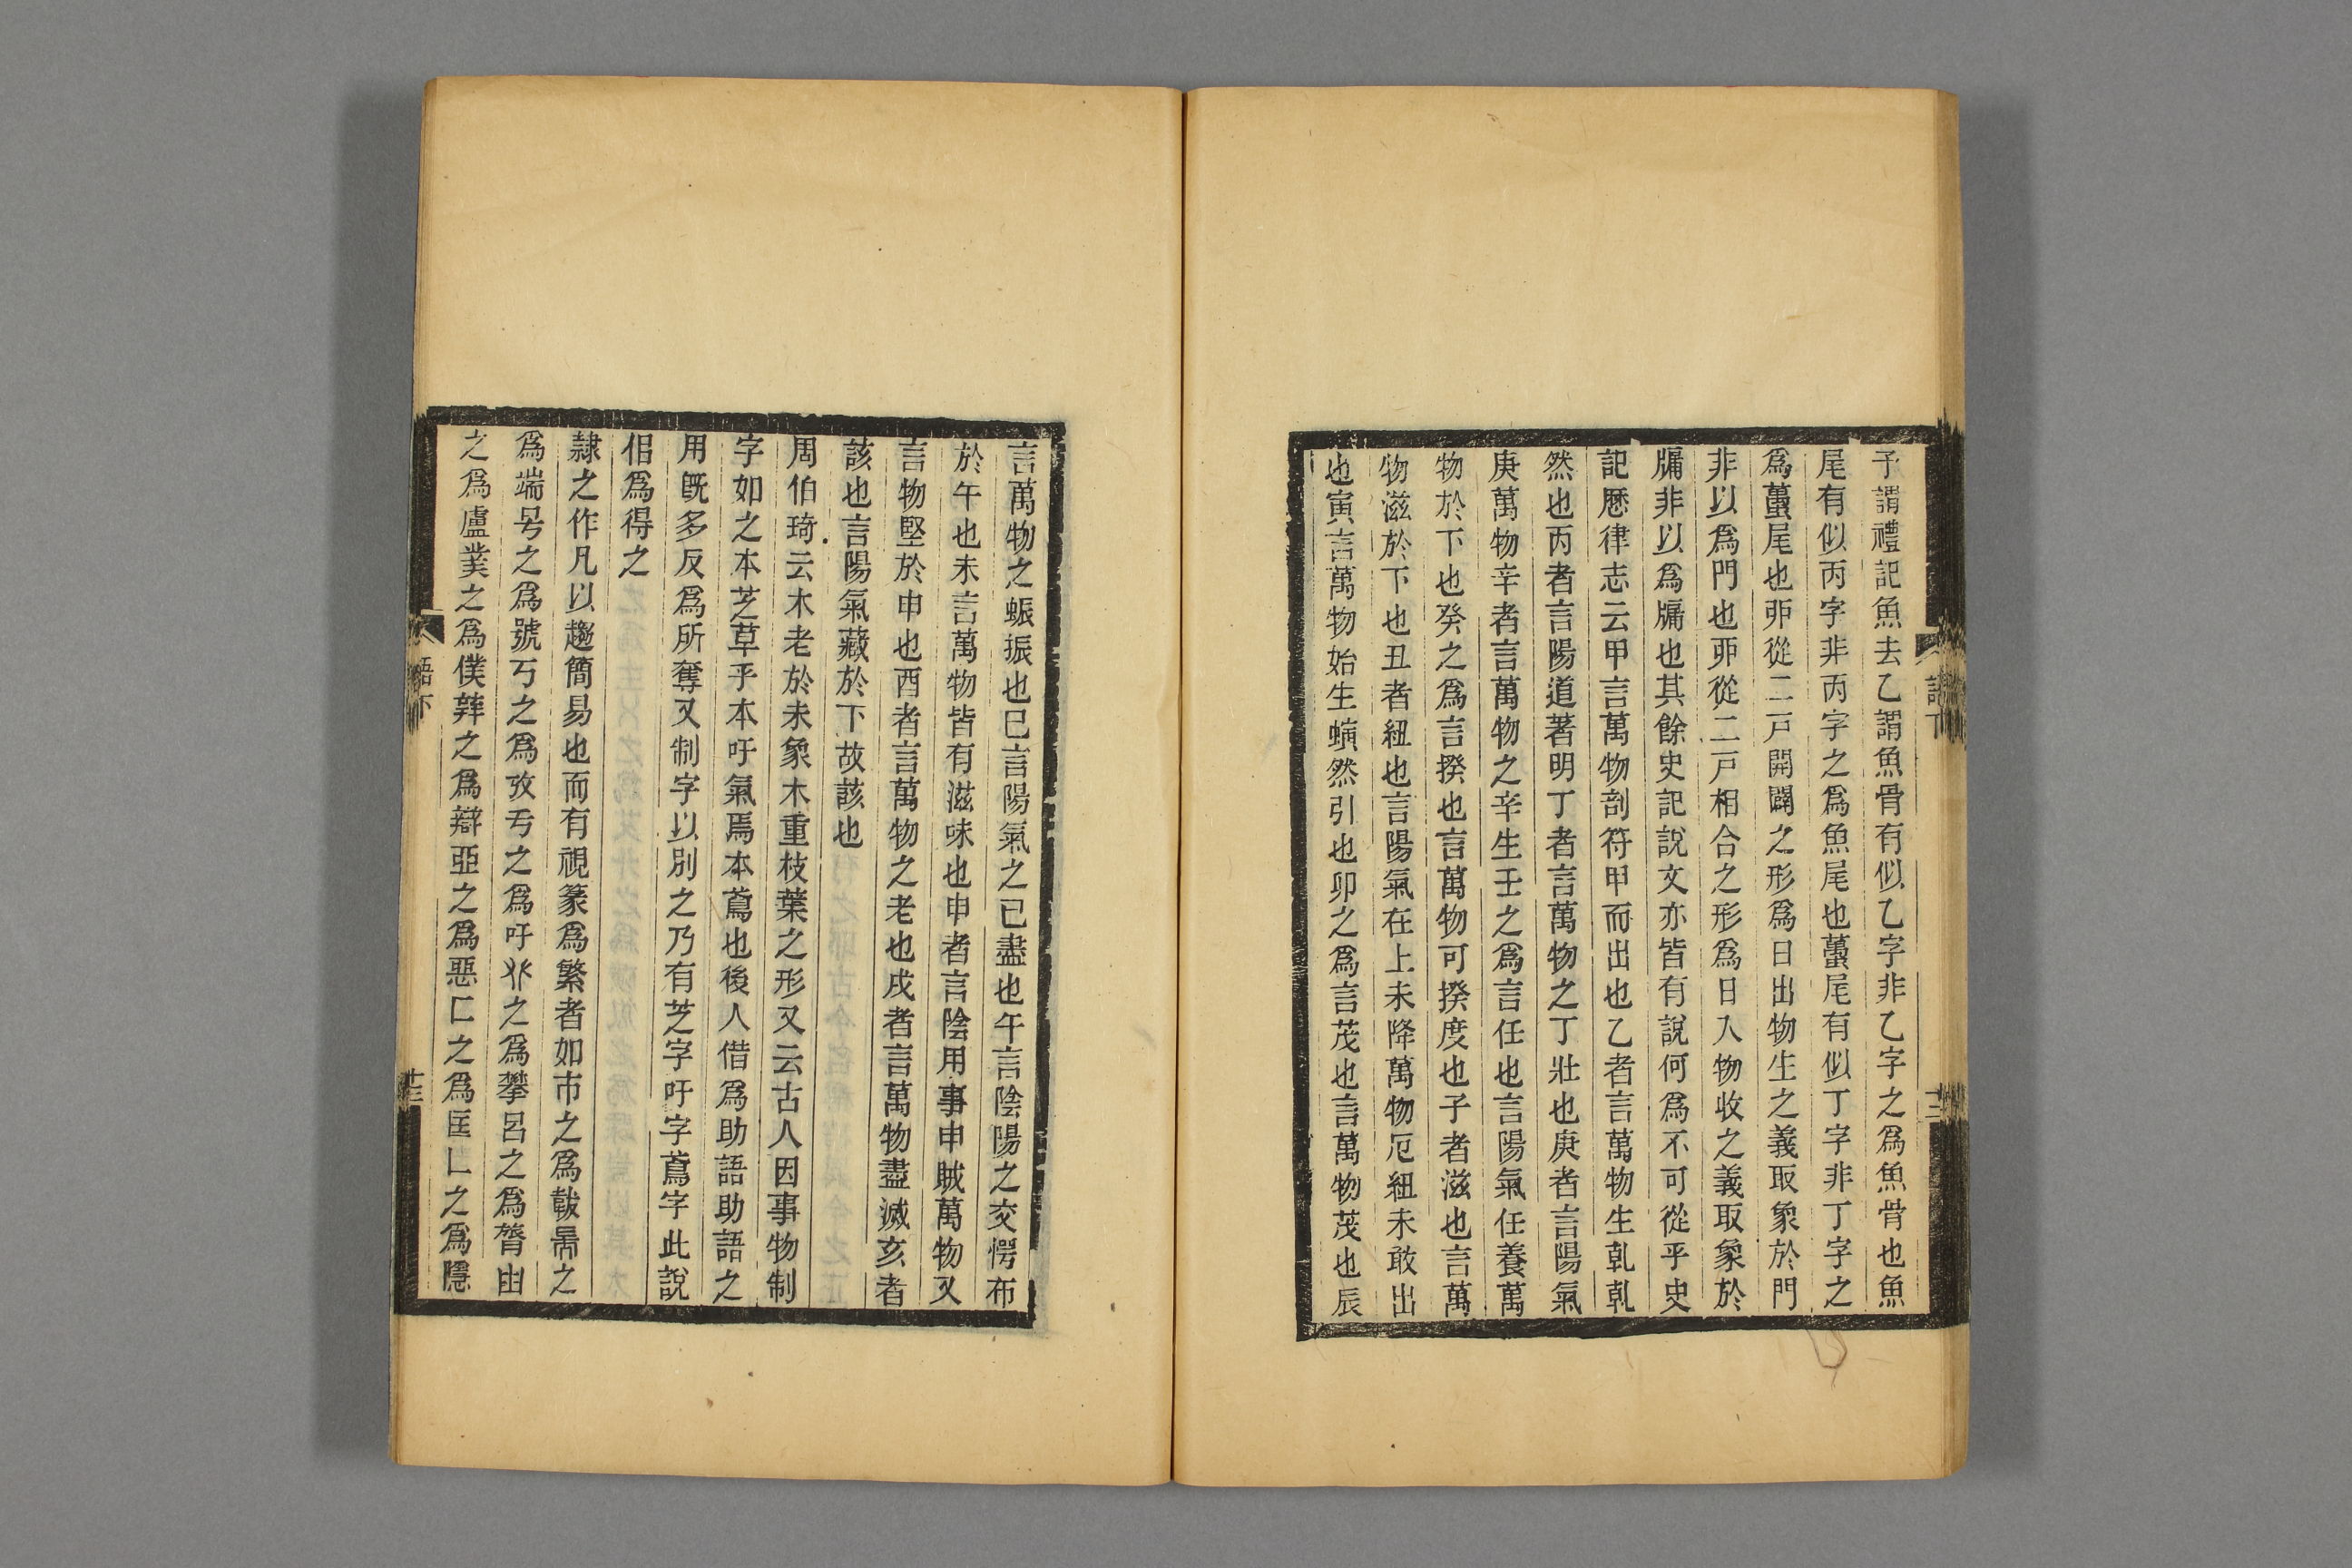 予謂禮記魚去乙謂魚骨有似乙字非乙字之爲魚骨也魚
尾有似丙字非丙字之爲魚尾也蠆尾有似丁字非丁字之
爲蠆尾也丣從二戸開闢之形爲日出物生之義取象於門
非以爲門也丣從二戸相合之形爲日入物收之義取象於
牖非以爲牖也其餘史記說文亦皆有說何爲不可從乎史
記歷律志云甲言萬物剖符甲而出也乙者言萬物生軋軋
然也丙者言陽道著明丁者言萬物之丁壯也庚者言陽氣
庚萬物辛者言萬物之辛生壬之爲言任也言陽氣任養萬
物於下也癸之爲言揆也言萬物可揆度也子者滋也言萬
物滋於下也丑者紐也言陽氣在上未降萬物厄紐未敢出
也寅言萬物始生螾然引也卯之爲言茂也言萬物茂也辰
語下
十二
言萬物之蜄振也巳言陽氣之已盡也午言陰陽之交愕布
於午也未言萬物皆有滋味也申者言陰用事申賊萬物又
言物堅於申也酉者言萬物之老也戌者言萬物盡滅亥者
該也言陽氣藏於下故該也
周伯琦云木老於未象木重枝葉之形又云古人因事物制
字如之本芝草乎本吁氣焉本鳶也後人借爲助語助語之
用旣多反爲所奪又制字以別之乃有芝字吁字鳶字此說
佀爲得之
隷之作凡以趨簡易也而有視篆爲繁者如巿之爲韍耑之
爲端号之爲號丂之爲攷亏之爲吁𠬜之爲攀呂之爲膂由
之爲盧菐之爲僕辡之爲辯亞之爲惡匚之爲匡𠃊之爲隱
語下
十三